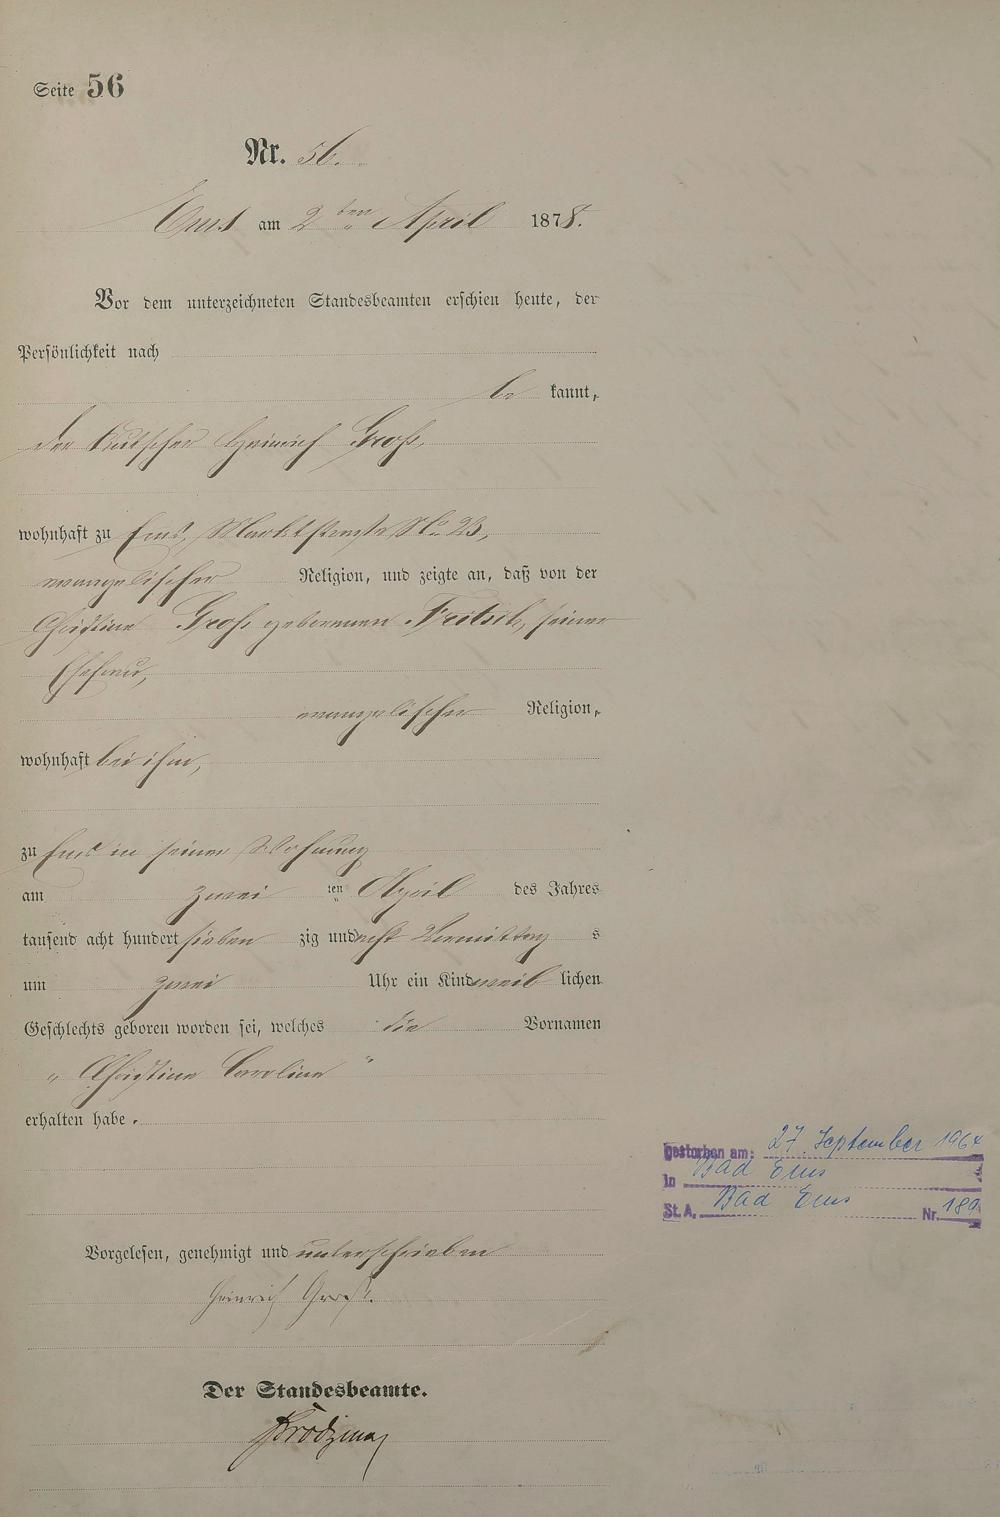 Seite 56
Nr. 56.
Ems am 2ten April 1878.
Vor dem unterzeichneten Standesbeamten erschien heute, der
Persönlichkeit nach
be kannt,
der Kutscher Heinrich Groß,
wohnhaft zu Ems, Marktstraße No 23,
evangelischer Religion, und zeigte an, daß von der
Christine Groß geborenen Fritsch, seiner
Ehefrau,
evangelischer Religion,
wohnhaft bei ihm,
zu Ems in seiner Wohnung
am zwei ten April des Jahres
tausend acht hundert sieben zig und acht Vormittag s
um zwei Uhr ein Kind weib lichen
Geschlechts geboren worden sei, welches die Vornamen
„Christine Caroline"
erhalten habe.
gestorben am: 27. September 1964
in Bad Ems
St. A. Bad Ems Nr.
Vorgelesen, genehmigt und unterschrieben
Heinrich Groß.
Der Standesbeamte.